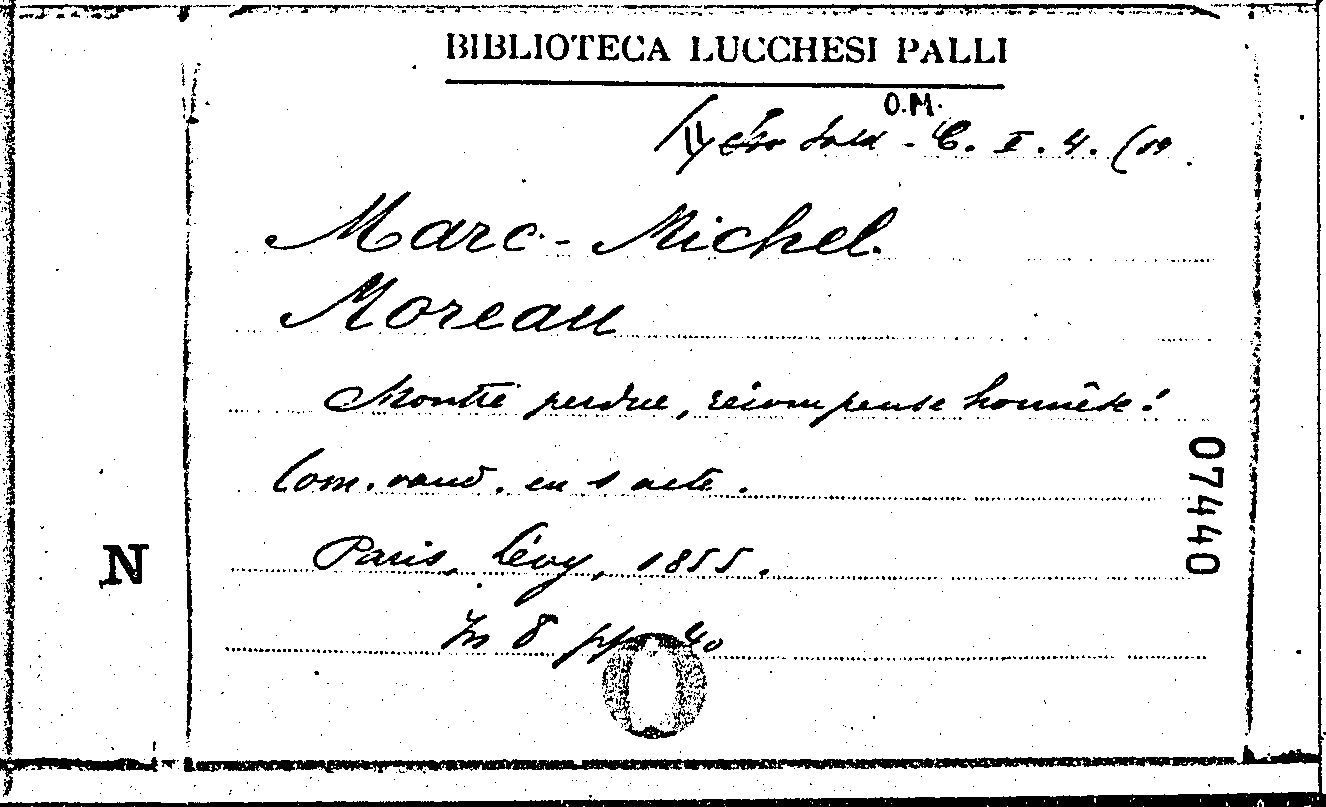 BIBLIOTECA LUCCHESI PALLI
O.M.
C. I. 4. (
Marc-Michel.
Moreau
Montre perdue, récompense honnête!
Com. vaud. en 1 acte.
Paris, Lévy, 1855.
In 8 pp. 40
N
07440